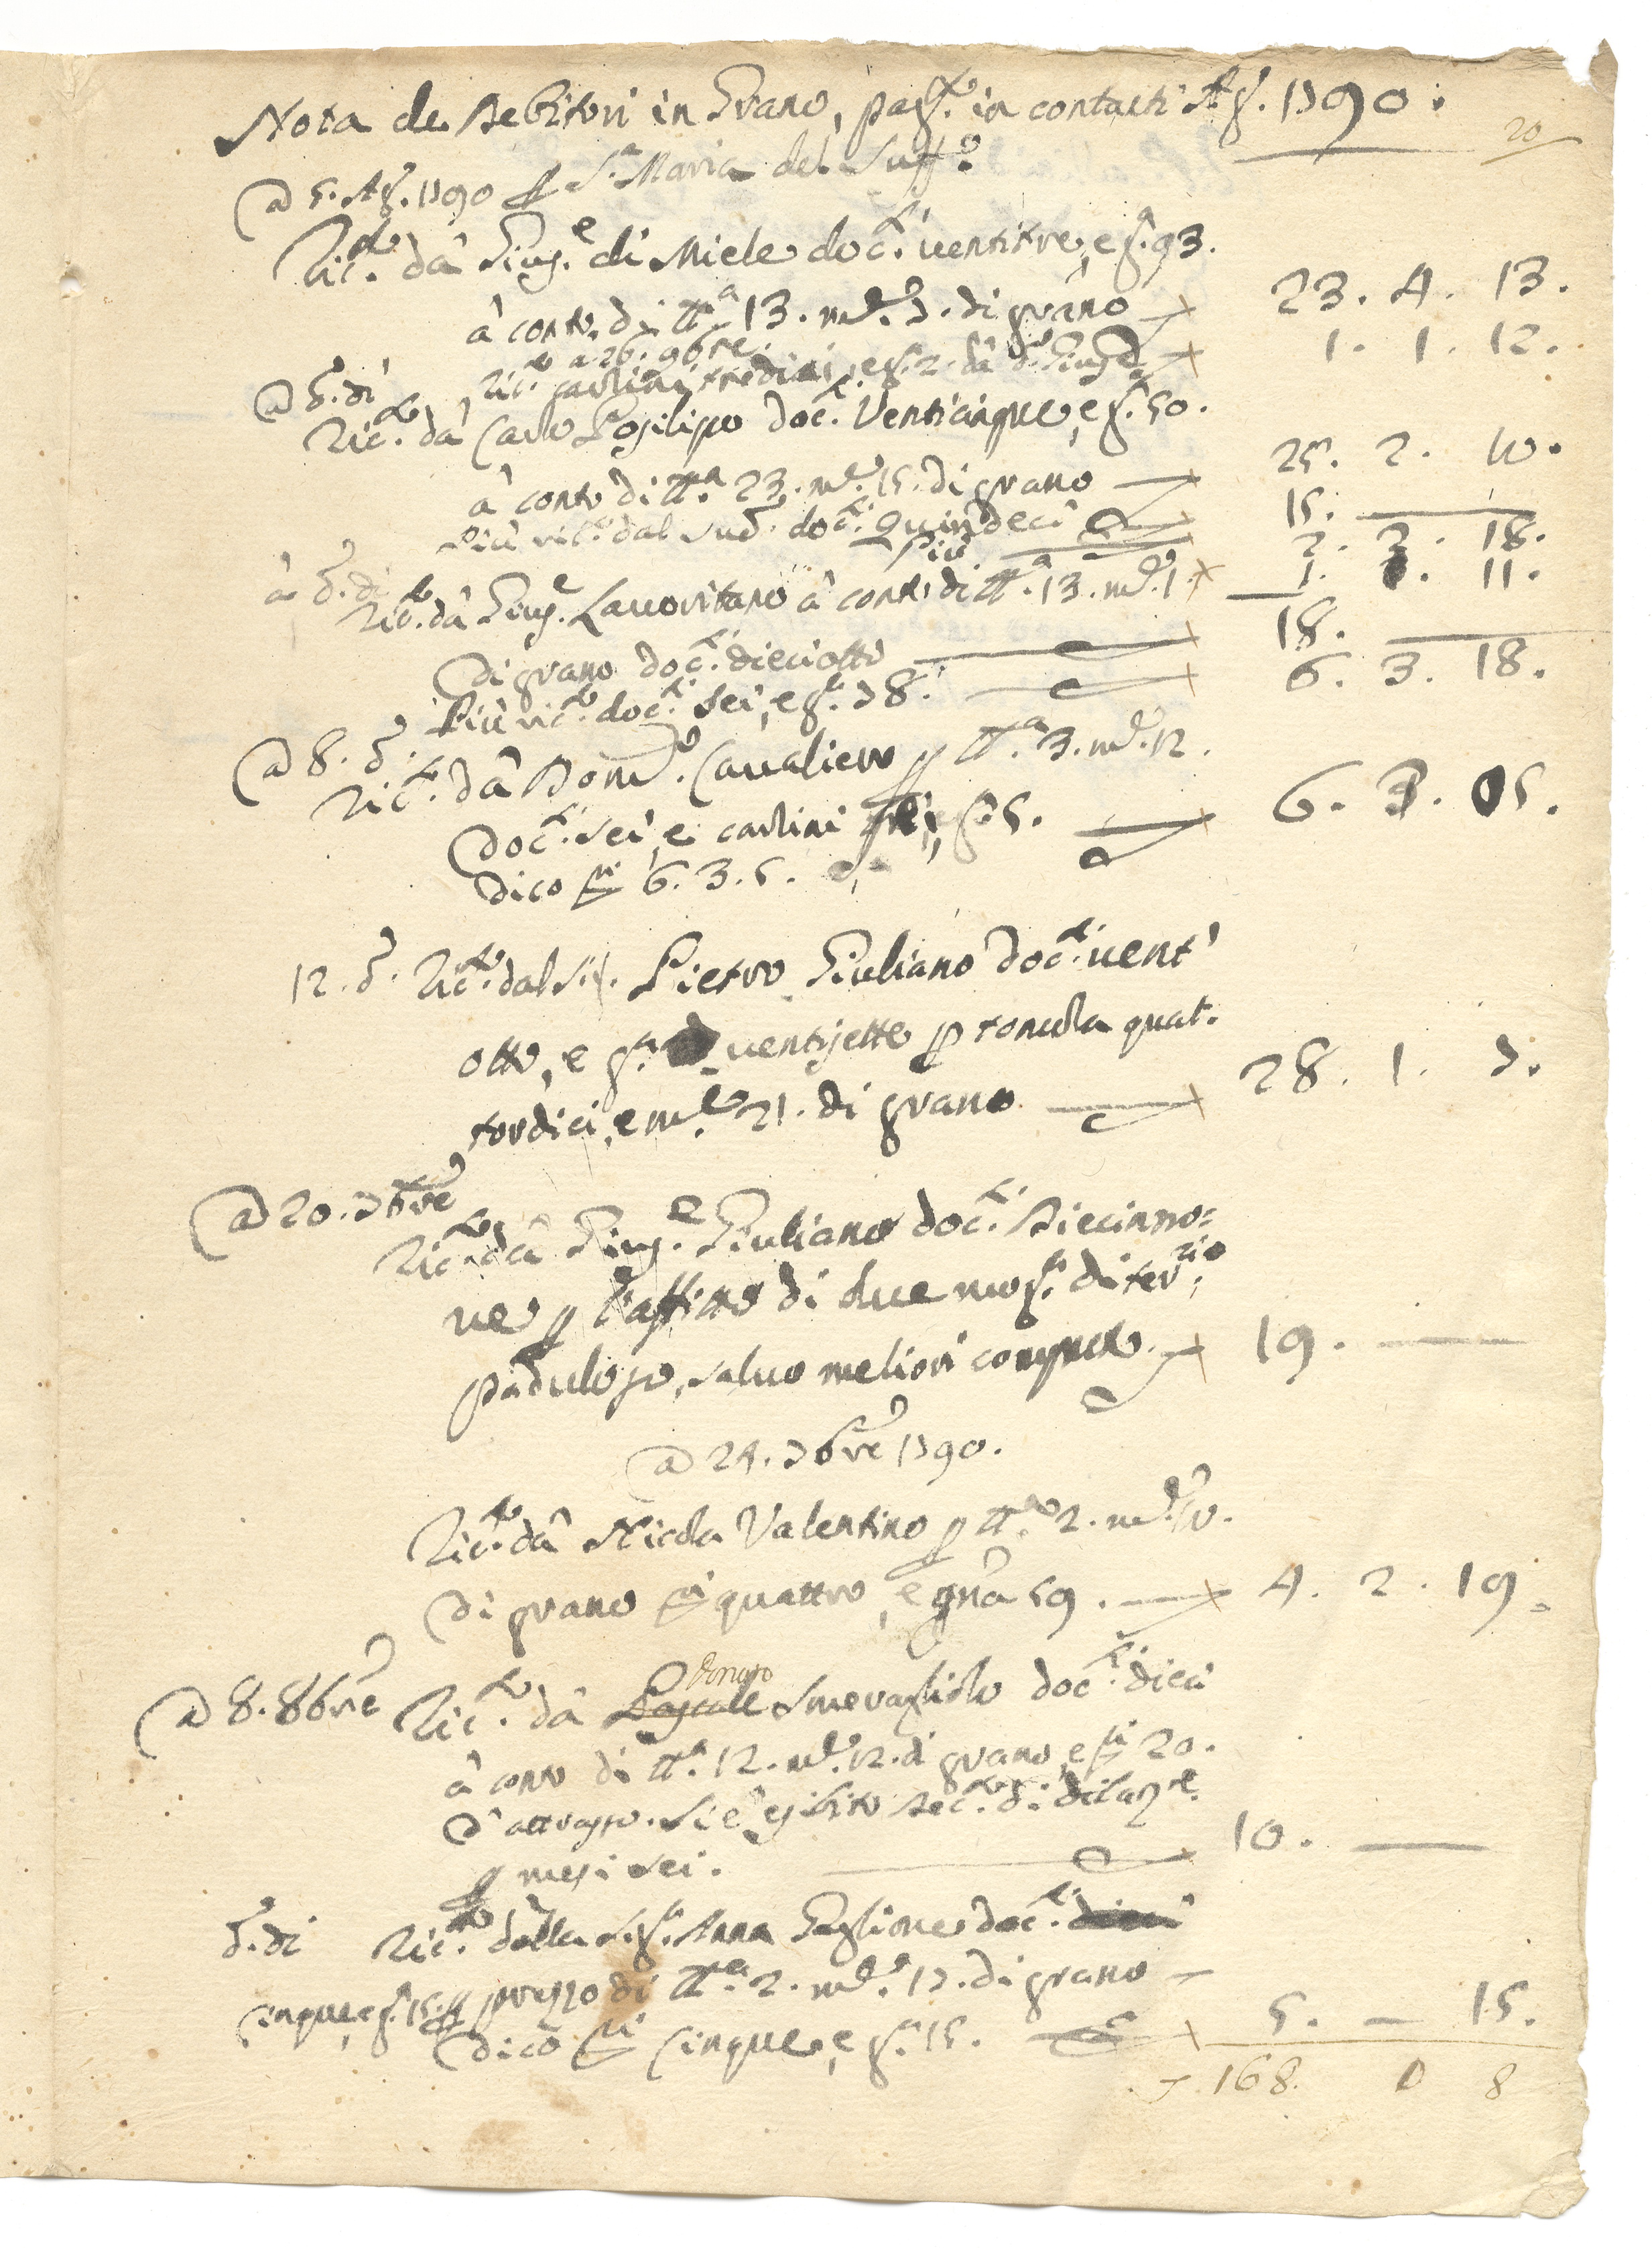 Nota de Debitori in Grano, pag.to in contanti Ag. 1790.
20
A 5. Ag. 1790 p S.a Maria del Suff.o
Ric.to dà Gius.e di Miele doc.ti ventitre, e g.a 93.
à conto di tt.a 13. md.o 7. di grano 23. 4. 13.
Ric.to a 26. 9bre.
carlini tredici, e g. 2. dà d.o Gius.e 1. 1. 12.
A d. dì
Ric.to dà Carlo Posilipo doc.ti Venticinque, e g.a 50.
à conto di tt.a 23. md.o 15. di grano 25. 2. 10.
Più ric.to dal sud.o doc.ti Quindeci 15.
Più 2. 2. 18.
à d. dì
Ric.to dà Gius.e Lavoritano à conto di tt.a 13. md.o 1 1. 11.
di grano doc.ti dieciotto 18.
Più ric.to doc.ti sei, e g.a 78. 6. 3. 18.
A 8. d.o
Ric.to dà Dom.o Cavaliero p tt.a 3. md.o 12.
Doc.ti sei, e carlini tre, e g. 5. 6. 3. 05.
Dico 6. 3. 5.
12. d. Ric.to dal Sig. Pietro Giuliano doc.ti vent'
otto, e g.a ventisette p tomola quat-
tordici, e m.e 21. di grano 28. 1. 7.
A 20. 7bre
Ric.to dà Gius.e Giuliano doc.ti Diecinno=
ve p l'affitto di due mog.a di ter.rio
paduloso, salvo meliori computo 19.
A 24. 7bre 1790.
Ric.to dà Nicola Valentino p tt.o 2. md.o 10.
di grano quattro, e gña 59. 4. 2. 19
A 8. 8bre Ric.to dà Pascale Donato Smeragliolo doc.ti dieci
à conto di tt.a 12. md.o 12. di grano, e 20.
d'attrasso. Si è esibito dec.to di dilaz.e
p mesi sei. 10.
d. dì Ric.to dalla Sig.a Anna Paglione doc.ti dieci
cinque, e g. 15. p prezzo di tt.a 2. md.o 17. di grano
Dico Cinque, e g.a 15. 5. — 15.
168. 0 8